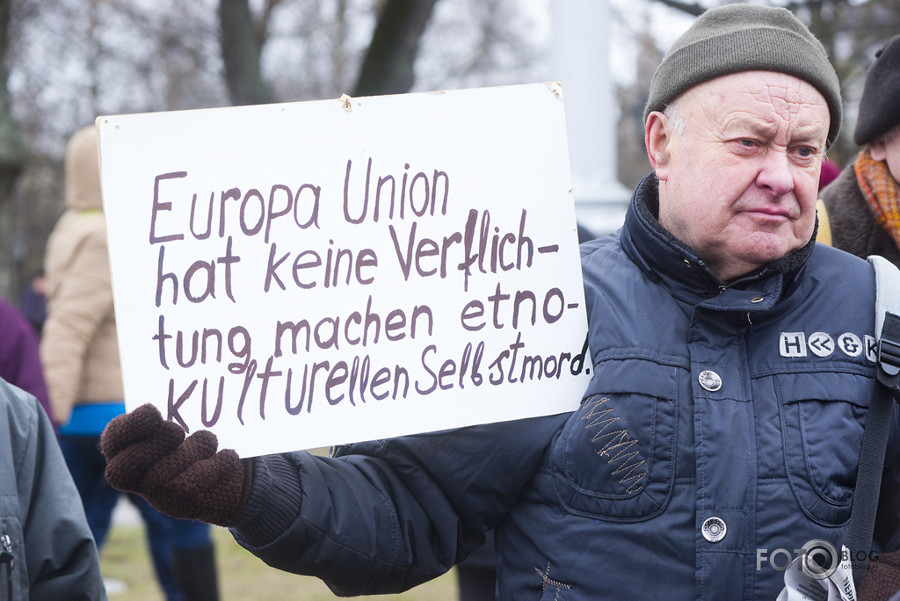 Europa Union
hat keine Verflich-
tung machen etno-
kulturellen Selbstmord!
H<<&K
FOTOBLOG
fotoblog.lv